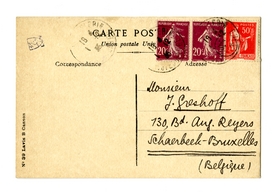 CARTE POSTALE
Union postale Universelle
20
20
50c
Correspondance
Adresse
Monsieur
J. Greshoff
130, Bd. Aug. Reyers
Schaerbeek-Bruxelles
(Belgique)